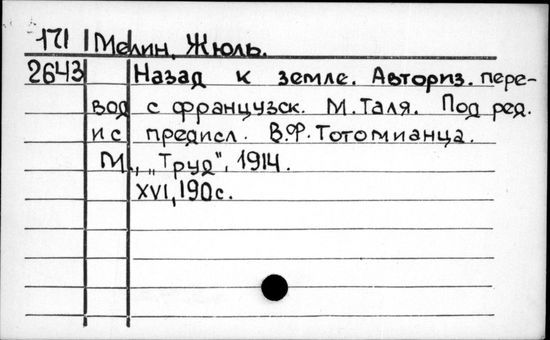 171 Мелин, Жюль.
2643 Назад к земле. Авториз. пере-
вод с французск. М. Таля. Под ред.
и с предисл. В.Ф. Тотомианца.
М., „Труд", 1914.
XVI, 190с.